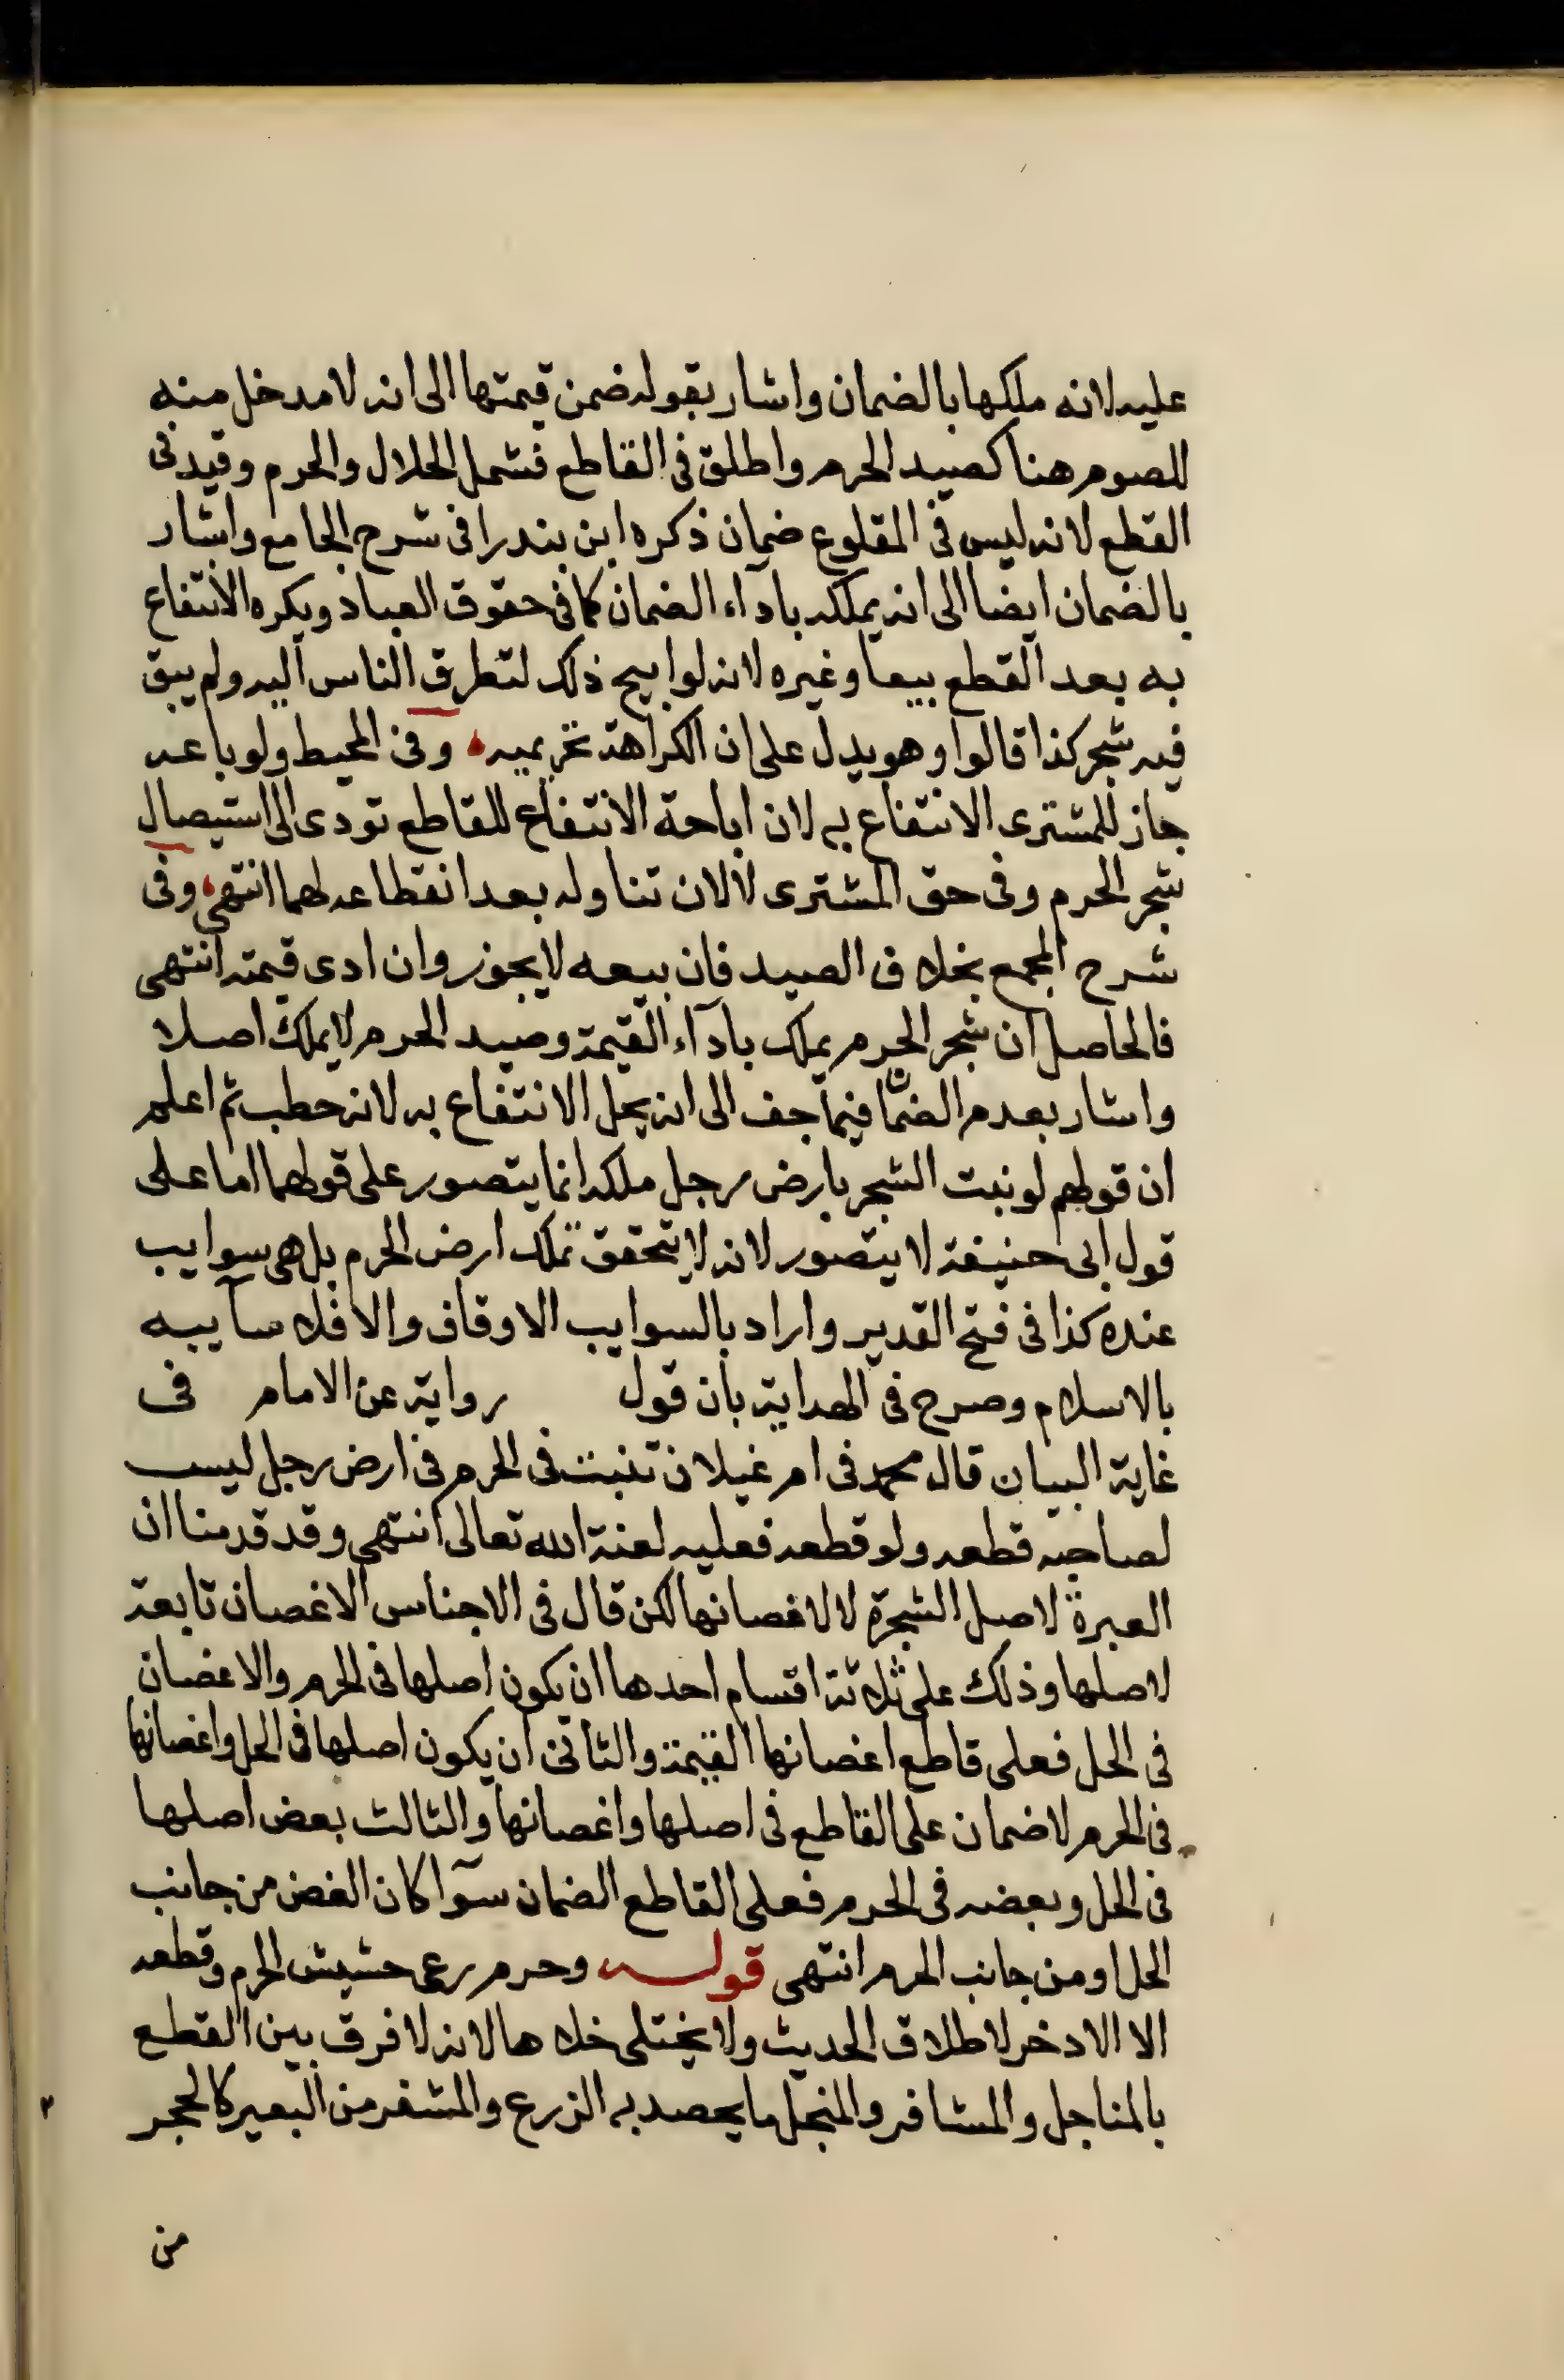 عليه لانه ملكها بالضمان واشار بقوله ضمن قيمتها الى انه لا مدخل منه
للصوم هنا كصيد الحرم واطلق فى القاطع فشمل الحلال والحرم وقيد فى
القطع لانه ليس فى المقلوع ضمان ذكره ابن بندرا فى شرح الجامع واشار
بالضمان ايضا الى انه يملكه بادآء الضمان كما فى حقوق العباد ويكره الانتفاع
به بعد القطع بيعا وغيره لانه لو ابيح ذلك لتطرق الناس اليه ولم يبق
فيه شجر كذا قالوا وهو يدل على ان الكراهة تحريميه وفى المحيط ولو باعه
جاز للمشترى الانتفاع به لان اباحة الانتفاع للقاطع تودى الى استيصال
شجر الحرم وفى حق المشترى لا لان تناوله بعد انقطاعه لهما انتهى وفى
شرح المجمع بخلاف الصيد فان بيعه لا يجوز وان ادى قيمته انتهى
فالحاصل ان شجر الحرم يملك بادآء القيمة وصيد الحرم لا يملك اصلا
واشار بعدم الضمان فيما جف الى انه يحل الانتفاع به لانه حطب ثم اعلم
ان قولهم لو نبت الشجر بارض رجل ملكه انما يتصور على قولهما اما على
قول ابى حنيفة لا يتصور لانه لا يتحقق تملك ارض الحرم بل هى سوايب
عنده كذا فى فتح القدير واراد بالسوايب الاوقاف والا فلا سآيبه
بالاسلام وصرح فى الهداية بان قول رواية عن الامام فى
غاية البيان قال محمد فى ام غيلان تنبت فى الحرم فى ارض رجل ليس
لصاحبه قطعه ولو قطعه فعليه لعنة الله تعالى انتهى وقد قدمنا ان
العبرة لاصل الشجرة لا لاغصانها لكن قال فى الاجناس الاغصان تابعة
لاصلها وذلك على ثلاثة اقسام احدها ان يكون اصلها فى الحرم والاغصان
فى الحل فعلى قاطع اغصانها القيمة والثانى ان يكون اصلها فى الحل واغصانها
فى الحرم لا ضمان على القاطع فى اصلها واغصانها والثالث بعض اصلها
فى الحل وبعضه فى الحرم فعلى القاطع الضمان سوآ كان الغصن من جانب
الحل او من جانب الحرم انتهى قوله وحرم رعى حشيش الحرم وقطعه
الا الاذخر لاطلاق الحديث ولا يختلى خلاها لانه لا فرق بين القطع
بالمناجل والمشافر والمنجل ما يحصد به الزرع والمشفر من البعير كالحجر
من